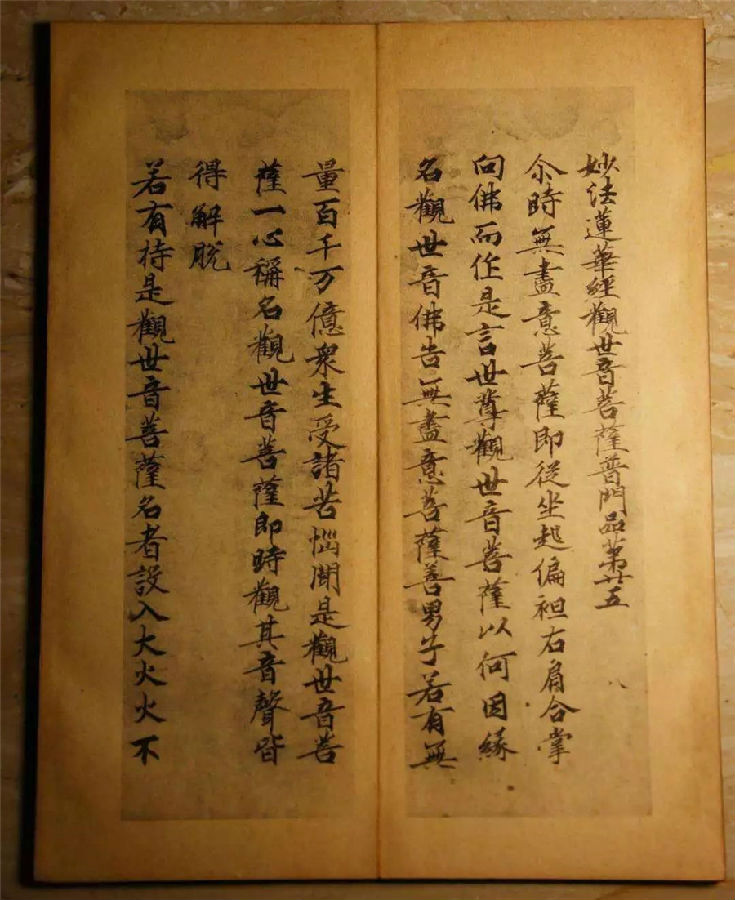 妙法蓮華經觀世音菩薩普門品第廿五
尒時無盡意菩薩即從坐起偏袒右肩合掌
向佛而作是言世尊觀世音菩薩以何因緣
名觀世音佛告無盡意菩薩善男子若有無
量百千万億衆生受諸苦惱聞是觀世音菩
薩一心稱名觀世音菩薩即時觀其音聲皆
得解脫
若有持是觀世音菩薩名者設入大火火不